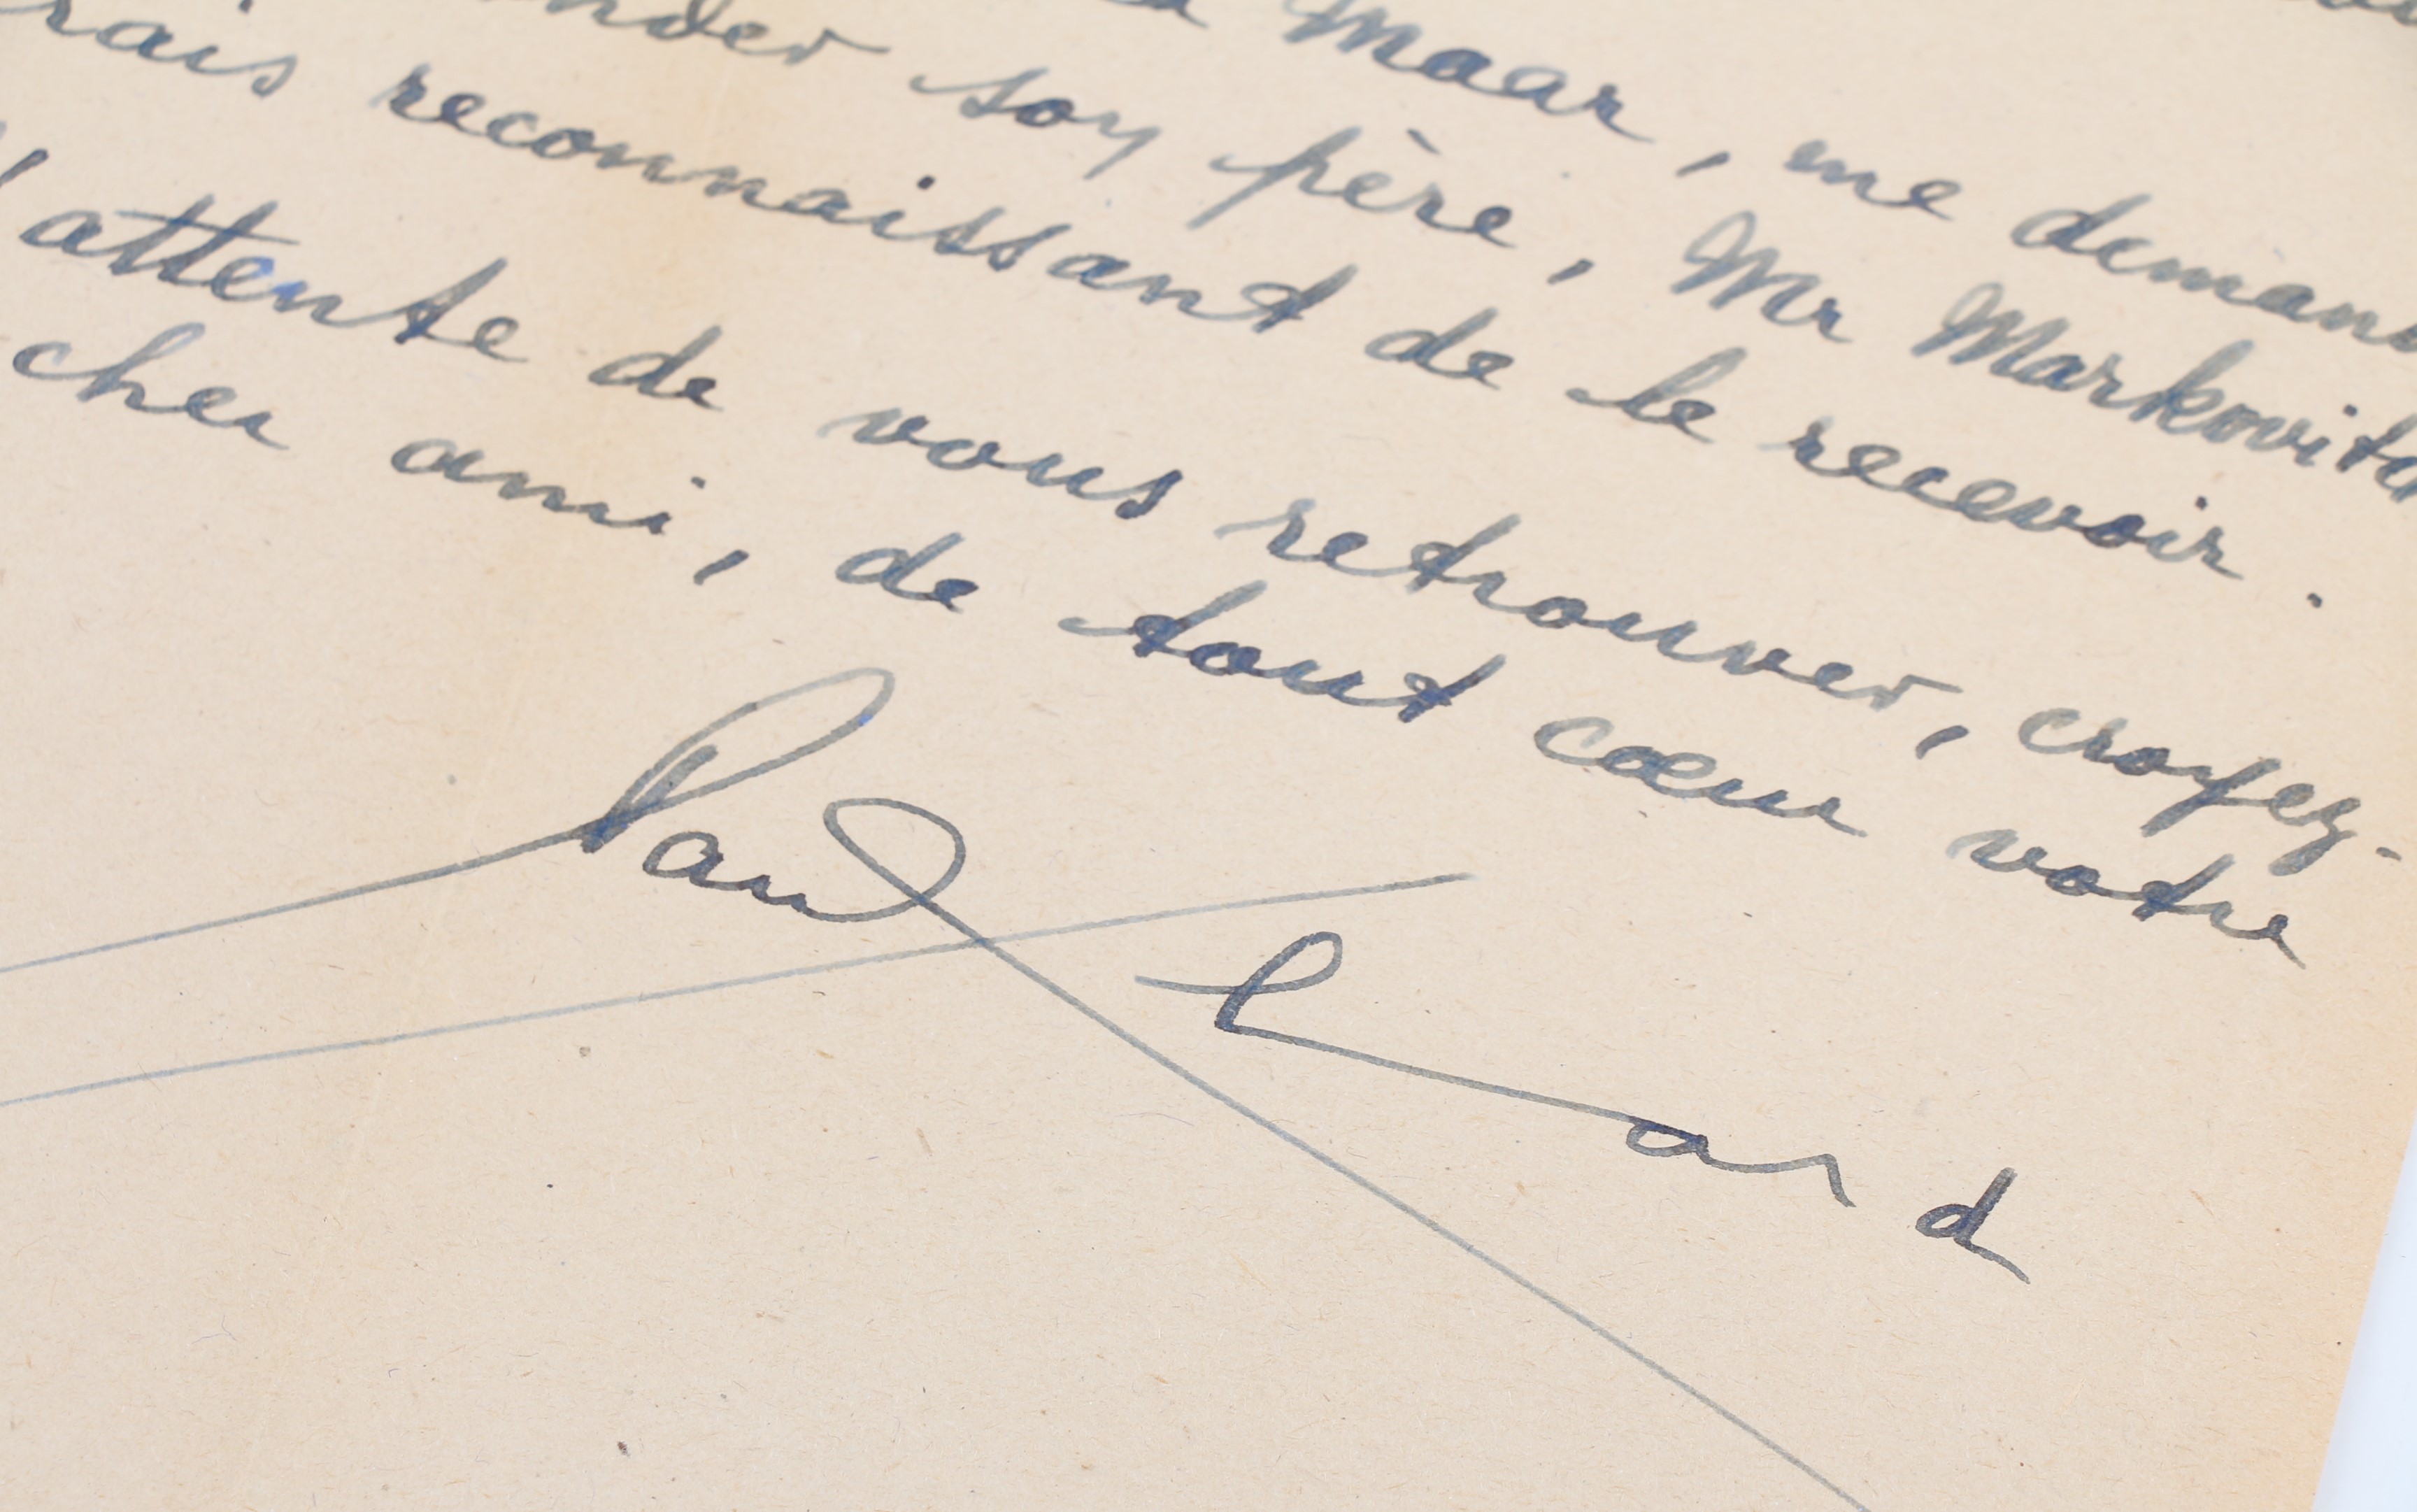 Maar, me deman
nder son père, Mr Markovitc
rais reconnaissant de le recevoir.
'attente de vous retrouver, croyez-
cher ami, de tout cœur votre
Paul Eluard